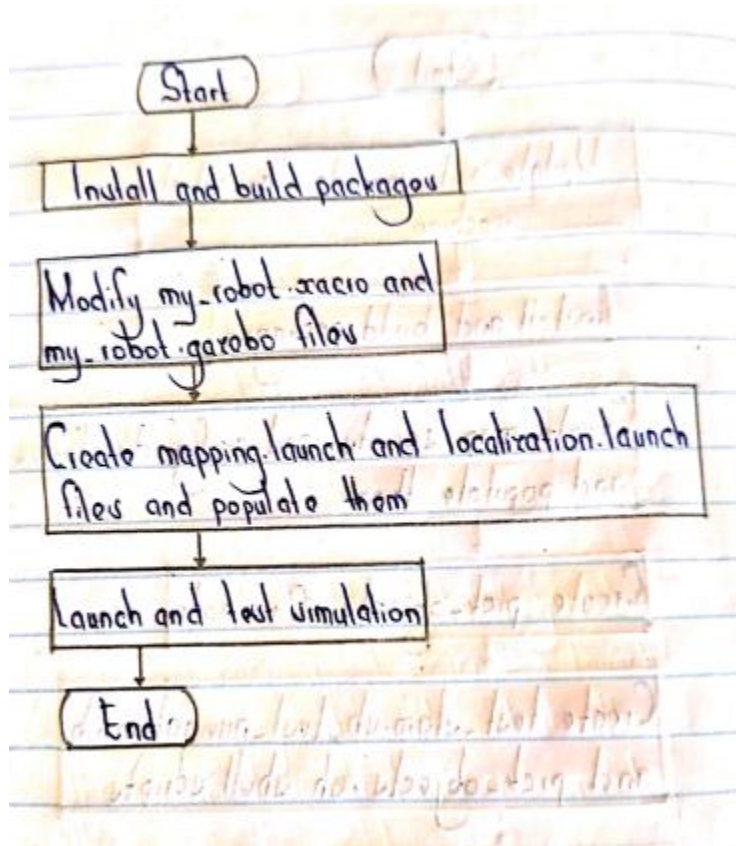 Start
Install and build packages
Modify my_robot.xacro and
my_robot.gazebo files
Create mapping.launch and localization.launch
files and populate them
Launch and test simulation
End